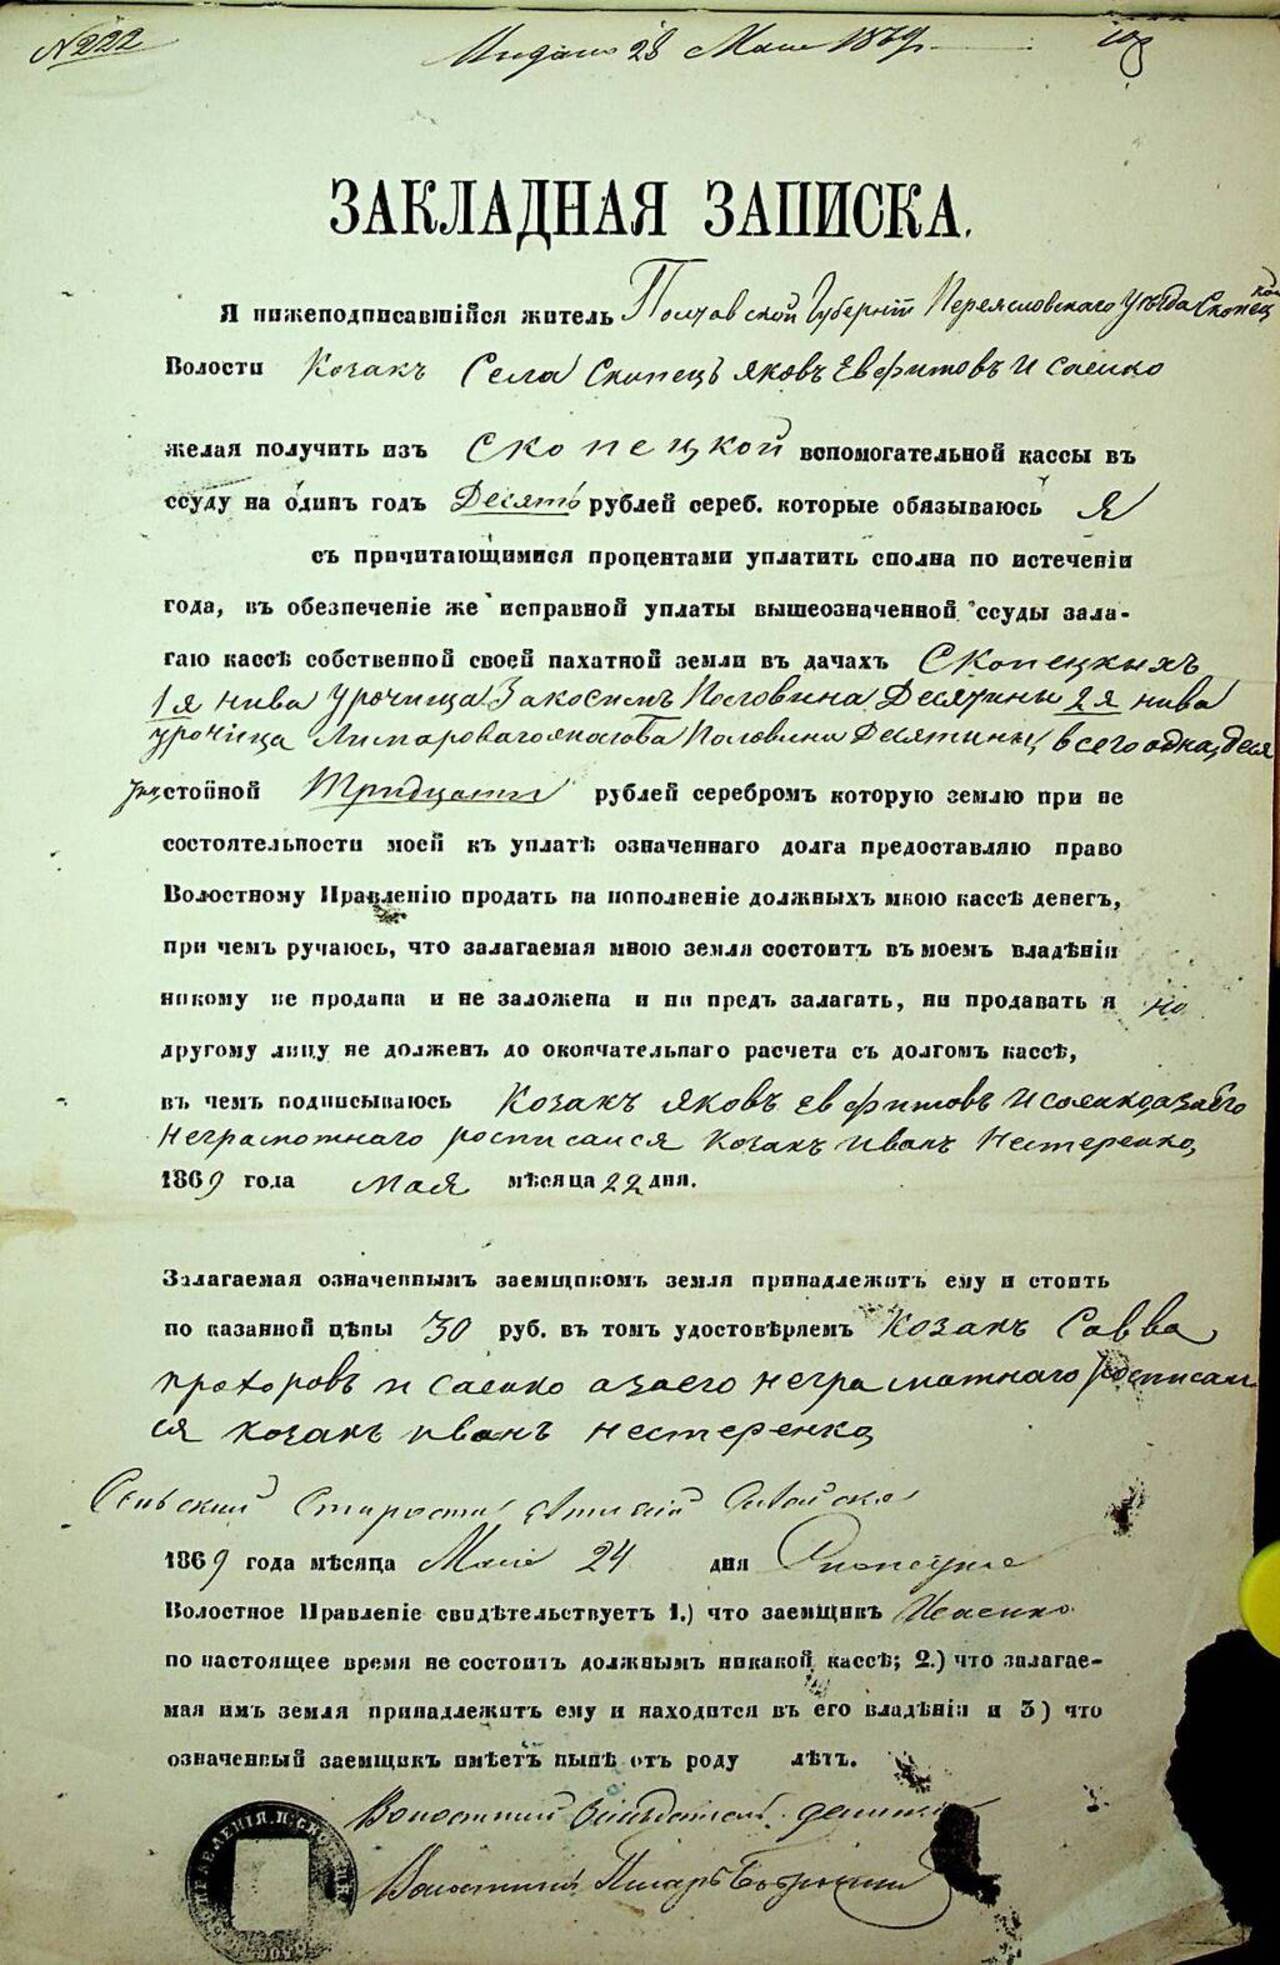 №222
28 Мая 1869
ЗАКЛАДНАЯ ЗАПИСКА.
Я нижеподписавшійся житель Полтавской Губерніи Переясловскаго Уѣзда Скопецкой
Волости Козакъ Села Скопецъ Яковъ Евфимовъ Исаенко
желая получить изъ Скопецкой вспомогательной кассы въ
ссуду на одинъ годъ Десять рублей сереб. которые обязываюсь Я
съ причитающимися процентами уплатить сполна по истеченіи
года, въ обезпеченіе же исправной уплаты вышеозначенной ссуды зала-
гаю кассѣ собственной своей пахатной земли въ дачахъ Скопецкихъ
1я нива Урочища Половина Десятины 2я нива
урочища Половина Десятины, всего одна, деся
стойной Тридцати рублей серебромъ которую землю при не
состоятельности моей къ уплатѣ означеннаго долга предоставляю право
Волостному Правленію продать на пополненіе должныхъ мною кассѣ денегъ,
при чемъ ручаюсь, что залагаемая мною земля состоитъ въ моемъ владѣніи
никому не продана и не заложена и ни предъ залагать, ни продавать я но
другому лицу не долженъ до окончательнаго расчета съ долгомъ кассѣ,
въ чемъ подписываюсь Козакъ Яковъ Евфимовъ Исаенко, азаего
Неграмотнаго росписался Козакъ Иванъ Нестеренко,
1869 года мая мѣсяца 22 дня.
Залагаемая означеннымъ заемщикомъ земля принадлежитъ ему и стоитъ
по казанной цѣны 30 руб. въ томъ удостовѣряемъ Козакъ Савва
прохоровъ исаенко азаего неграмотнаго росписал
ся козакъ иванъ нестеренко
Сельский Староста
1869 года мѣсяца Мая 24 дня Скопецкое
Волостное Правленіе свидѣтельствуетъ 1.) что заемщикъ Исаенко
по настоящее время не состоитъ должнымъ никакой кассѣ; 2.) что залагае-
мая имъ земля принадлежитъ ему и находится въ его владѣніи и 3) что
означенный заемщикъ имѣетъ нынѣ отъ роду лѣтъ.
Волостний
Волостний Писарь